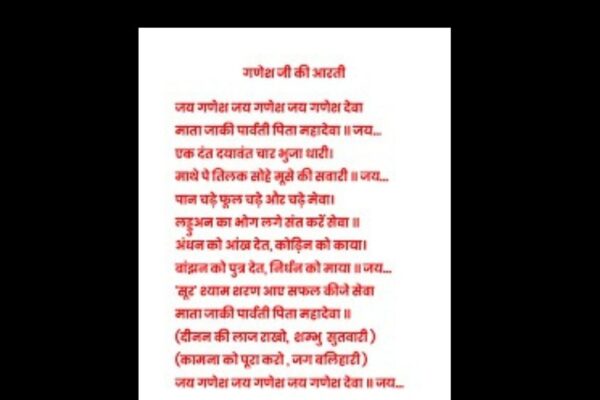 गणेश जी की आरती
जय गणेश जय गणेश जय गणेश देवा
माता जाकी पार्वती पिता महादेवा ॥ जय...
एक दंत दयावंत चार भुजा धारी।
माथे पे तिलक सोहे मूसे की सवारी ॥ जय...
पान चढ़े फूल चढ़े और चढ़े मेवा।
लड्डुअन का भोग लगे संत करें सेवा ॥
अंधन को आंख देत, कोढ़िन को काया।
बांझन को पुत्र देत, निर्धन को माया ॥ जय...
'सूर' श्याम शरण आए सफल कीजे सेवा
माता जाकी पार्वती पिता महादेवा ॥
(दीनन की लाज राखो, शम्भु सुतवारी )
(कामना को पूरा करो , जग बलिहारी )
जय गणेश जय गणेश जय गणेश देवा ॥ जय...